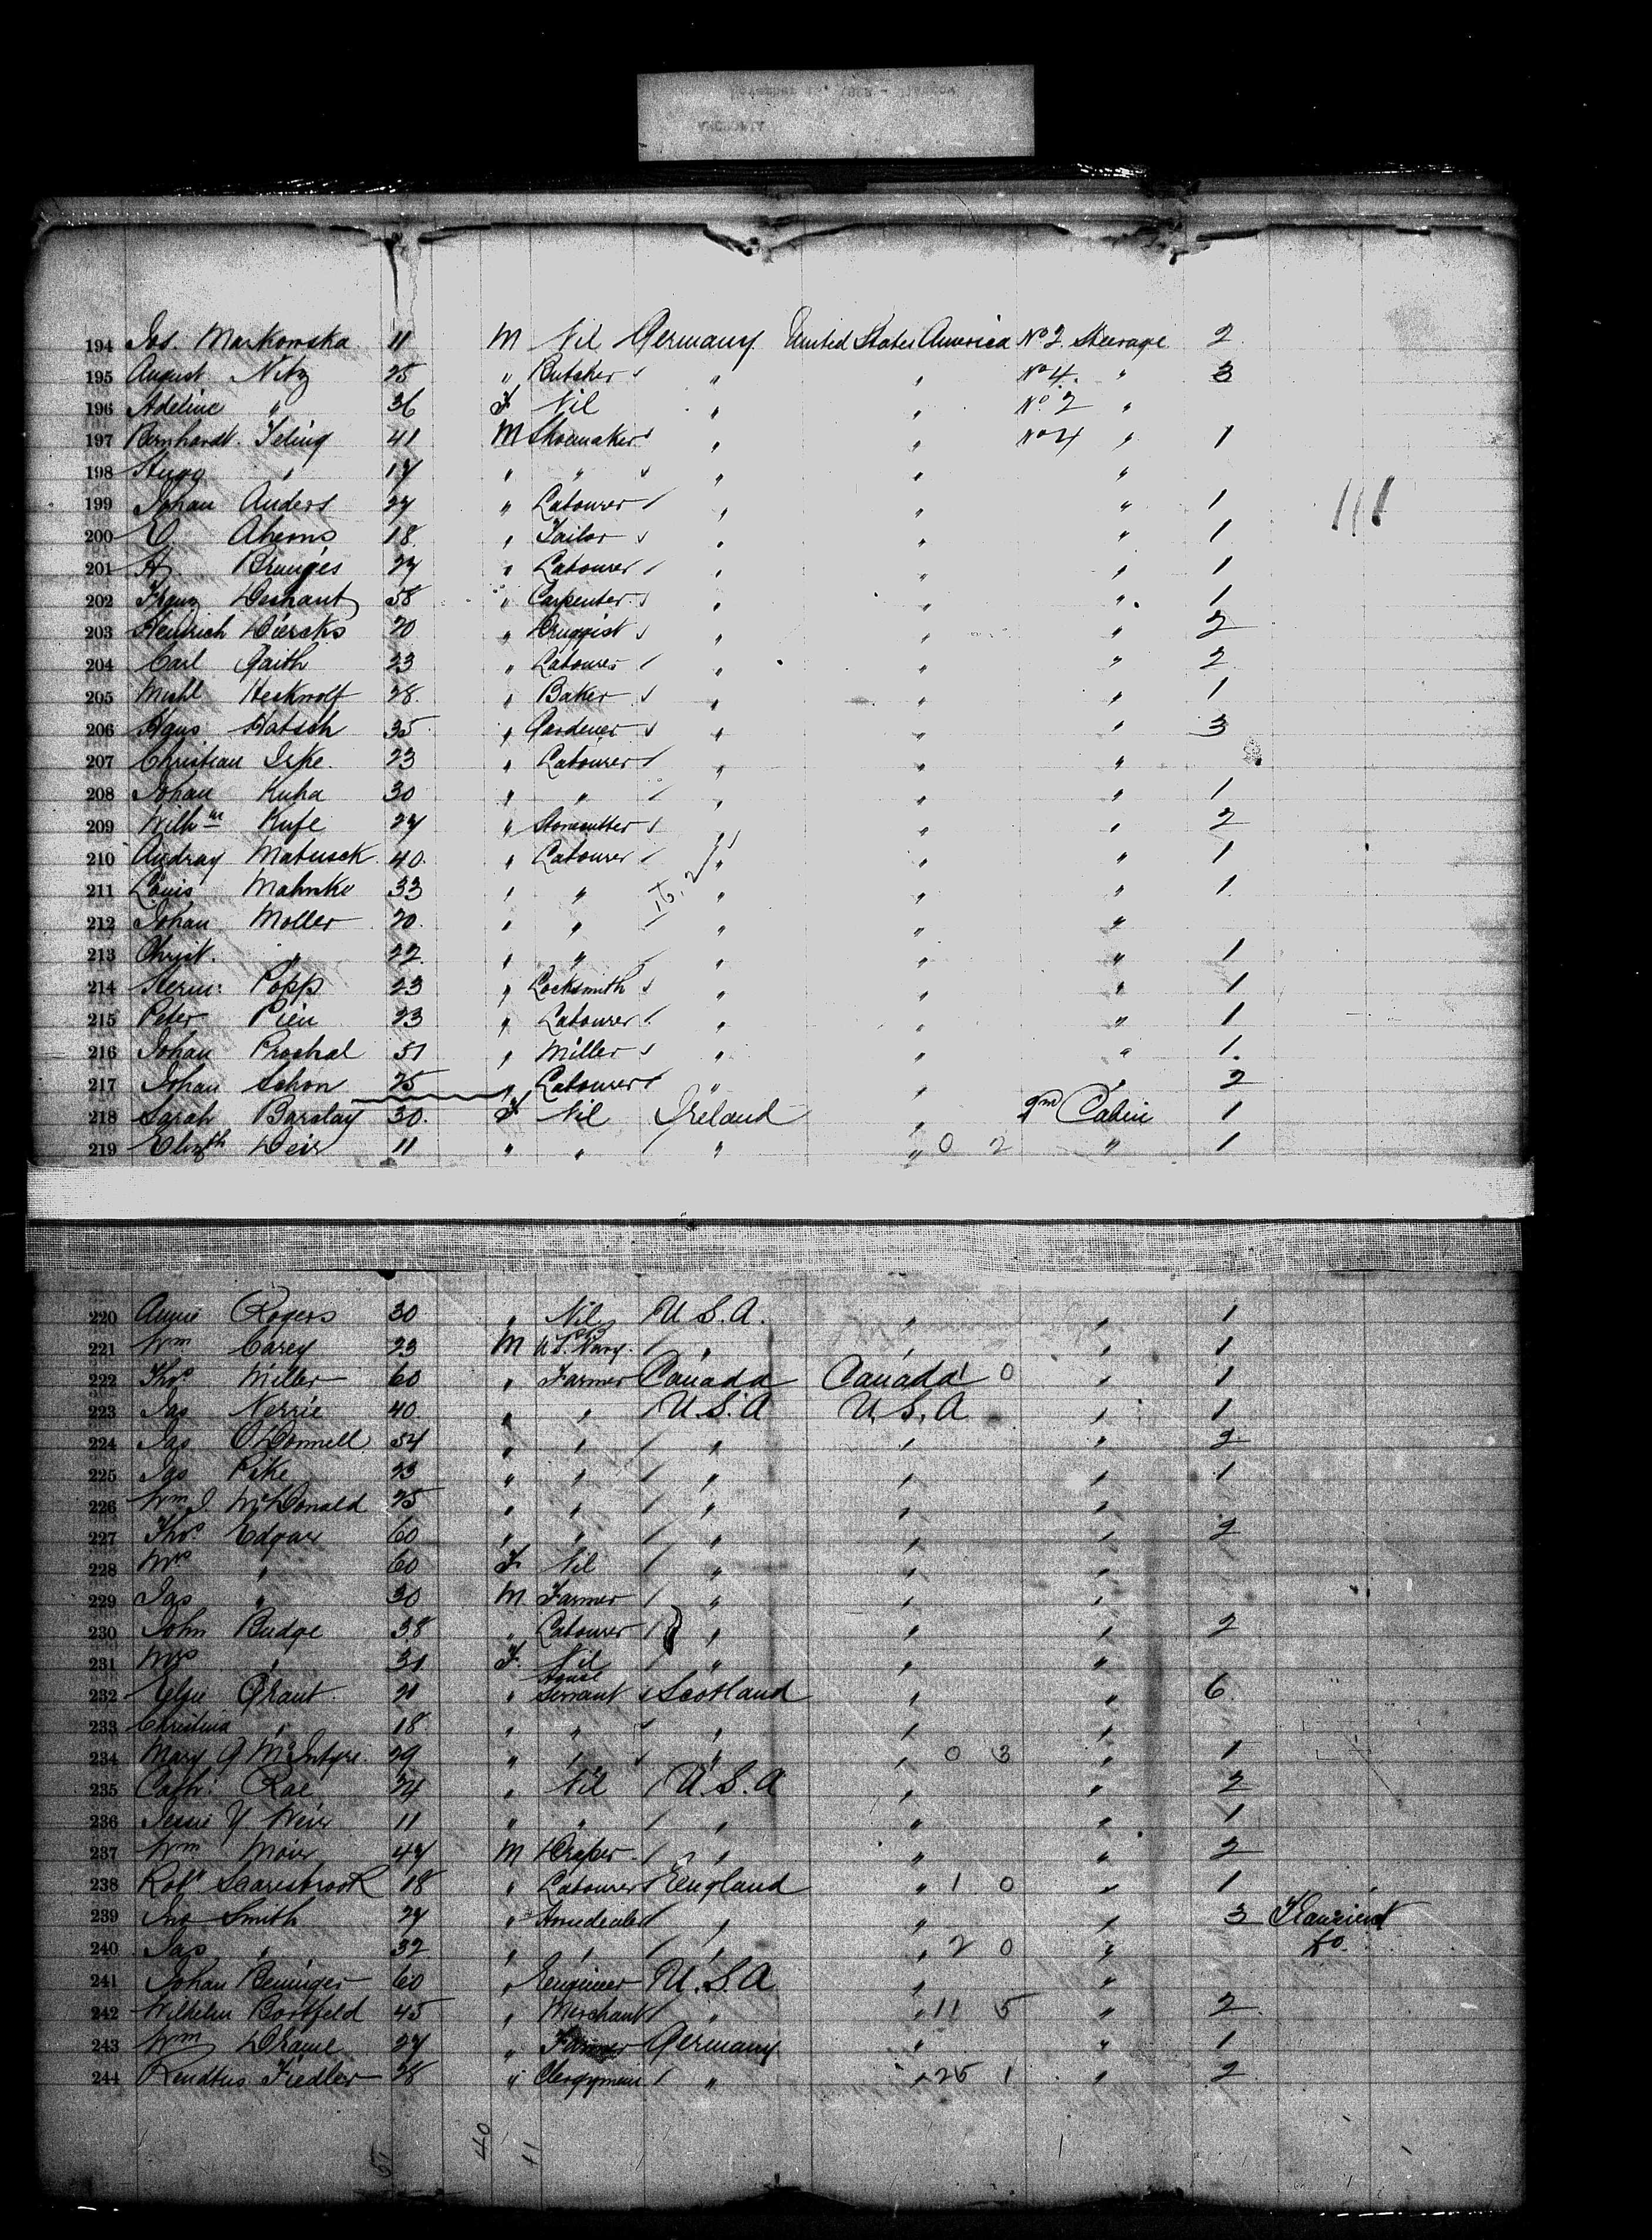 194 Jos. Markowska 11 M Nil Germany United States America No 2. Steerage 2
195 August Nitz 25 " Butcher " " No 4. " 3
196 Adeline " 36 F Nil " " No 2 "
197 Bernhardt 41 M Shoemaker " " No 4 " 1
198 Hugo " 17 " " " " "
199 Johan Anders 27 " Labourer " " " 1
200 Ahrens 18 " Tailor " " " 1
201 Brunjes 27 " Labourer " " " 1
202 Franz 58 " Carpenter " " " 1
203 Heinrich Diercks 20 " Druggist " " " 2
204 Carl Gaith 23 " Labourer " " " 2
205 Michl Heckwolf 28 " Baker " " " 1
206 Hans Hatsch 35 " Gardener " " " 3
207 Christian Iske 23 " Labourer " " "
208 Johan Kuha 30 " " " " " 1
209 Wilhm Kufe 27 " Stonecutter " " " 2
210 Andray Matusck 40 " Labourer " " " 1
211 Louis Mahnke 33 " " " " " 1
212 Johan Moller 20 " " " " "
213 Christ. " 22 " " " " " 1
214 Herm: Popp 23 " Locksmith " " " 1
215 Peter Pien 23 " Labourer " " " 1
216 Johan 51 " Miller " " " 1
217 Johan Schon 25 " Labourer " " " 2
218 Sarah Barclay 30 F Nil Ireland " 2nd Cabin 1
219 Elizth Weir 11 " " " " 0 2 " 1
220 Annie Rogers 30 " Nil U.S.A. " " 1
221 Wm Carey 23 M U.S. Navy " " " 1
222 Thos Miller 60 " Farmer Canada Canada 1 0 " 1
223 Jas Nerrie 40 " " U.S.A U.S.A " 1
224 Jas O'Donnell 54 " " " " " 2
225 Jas Pike 23 " " " " " 1
226 Wm J. McDonald 25 " " " " "
227 Thos Edgar 60 " " " " " 2
228 Mrs " 60 F Nil " " "
229 Jas " 30 M Farmer " " "
230 John Budge 38 " Labourer " " " 2
231 Mrs " 31 F. Nil " " "
232 Elsie Grant 21 " House Servant Scotland " " 6
233 Christina " 18 " " " " "
234 Mary McIntyre 29 " " " " 0 3 " 1
235 Cathr: Rae 24 " Nil U.S.A " " 2
236 Jessie Y Weir 11 " " " " " 1
237 Wm Moir 47 M Draper " " " 2
238 Robt Scaresbrook 18 " Labourer England " 1 0 " 1
239 Jno Smith 27 " Horsedealer " " " 3 Transient
240 Jas " 32 " " " " 2 0 " Do.
241 Johan Beninger 60 " Engineer U.S.A " "
242 Wilhelm Bortfeld 45 " Merchant " " 11 5 " 2
243 Wm 27 " Farmer Germany " " 1
244 Fiedler 28 " Clergyman " " 25 1 " 2
40
41